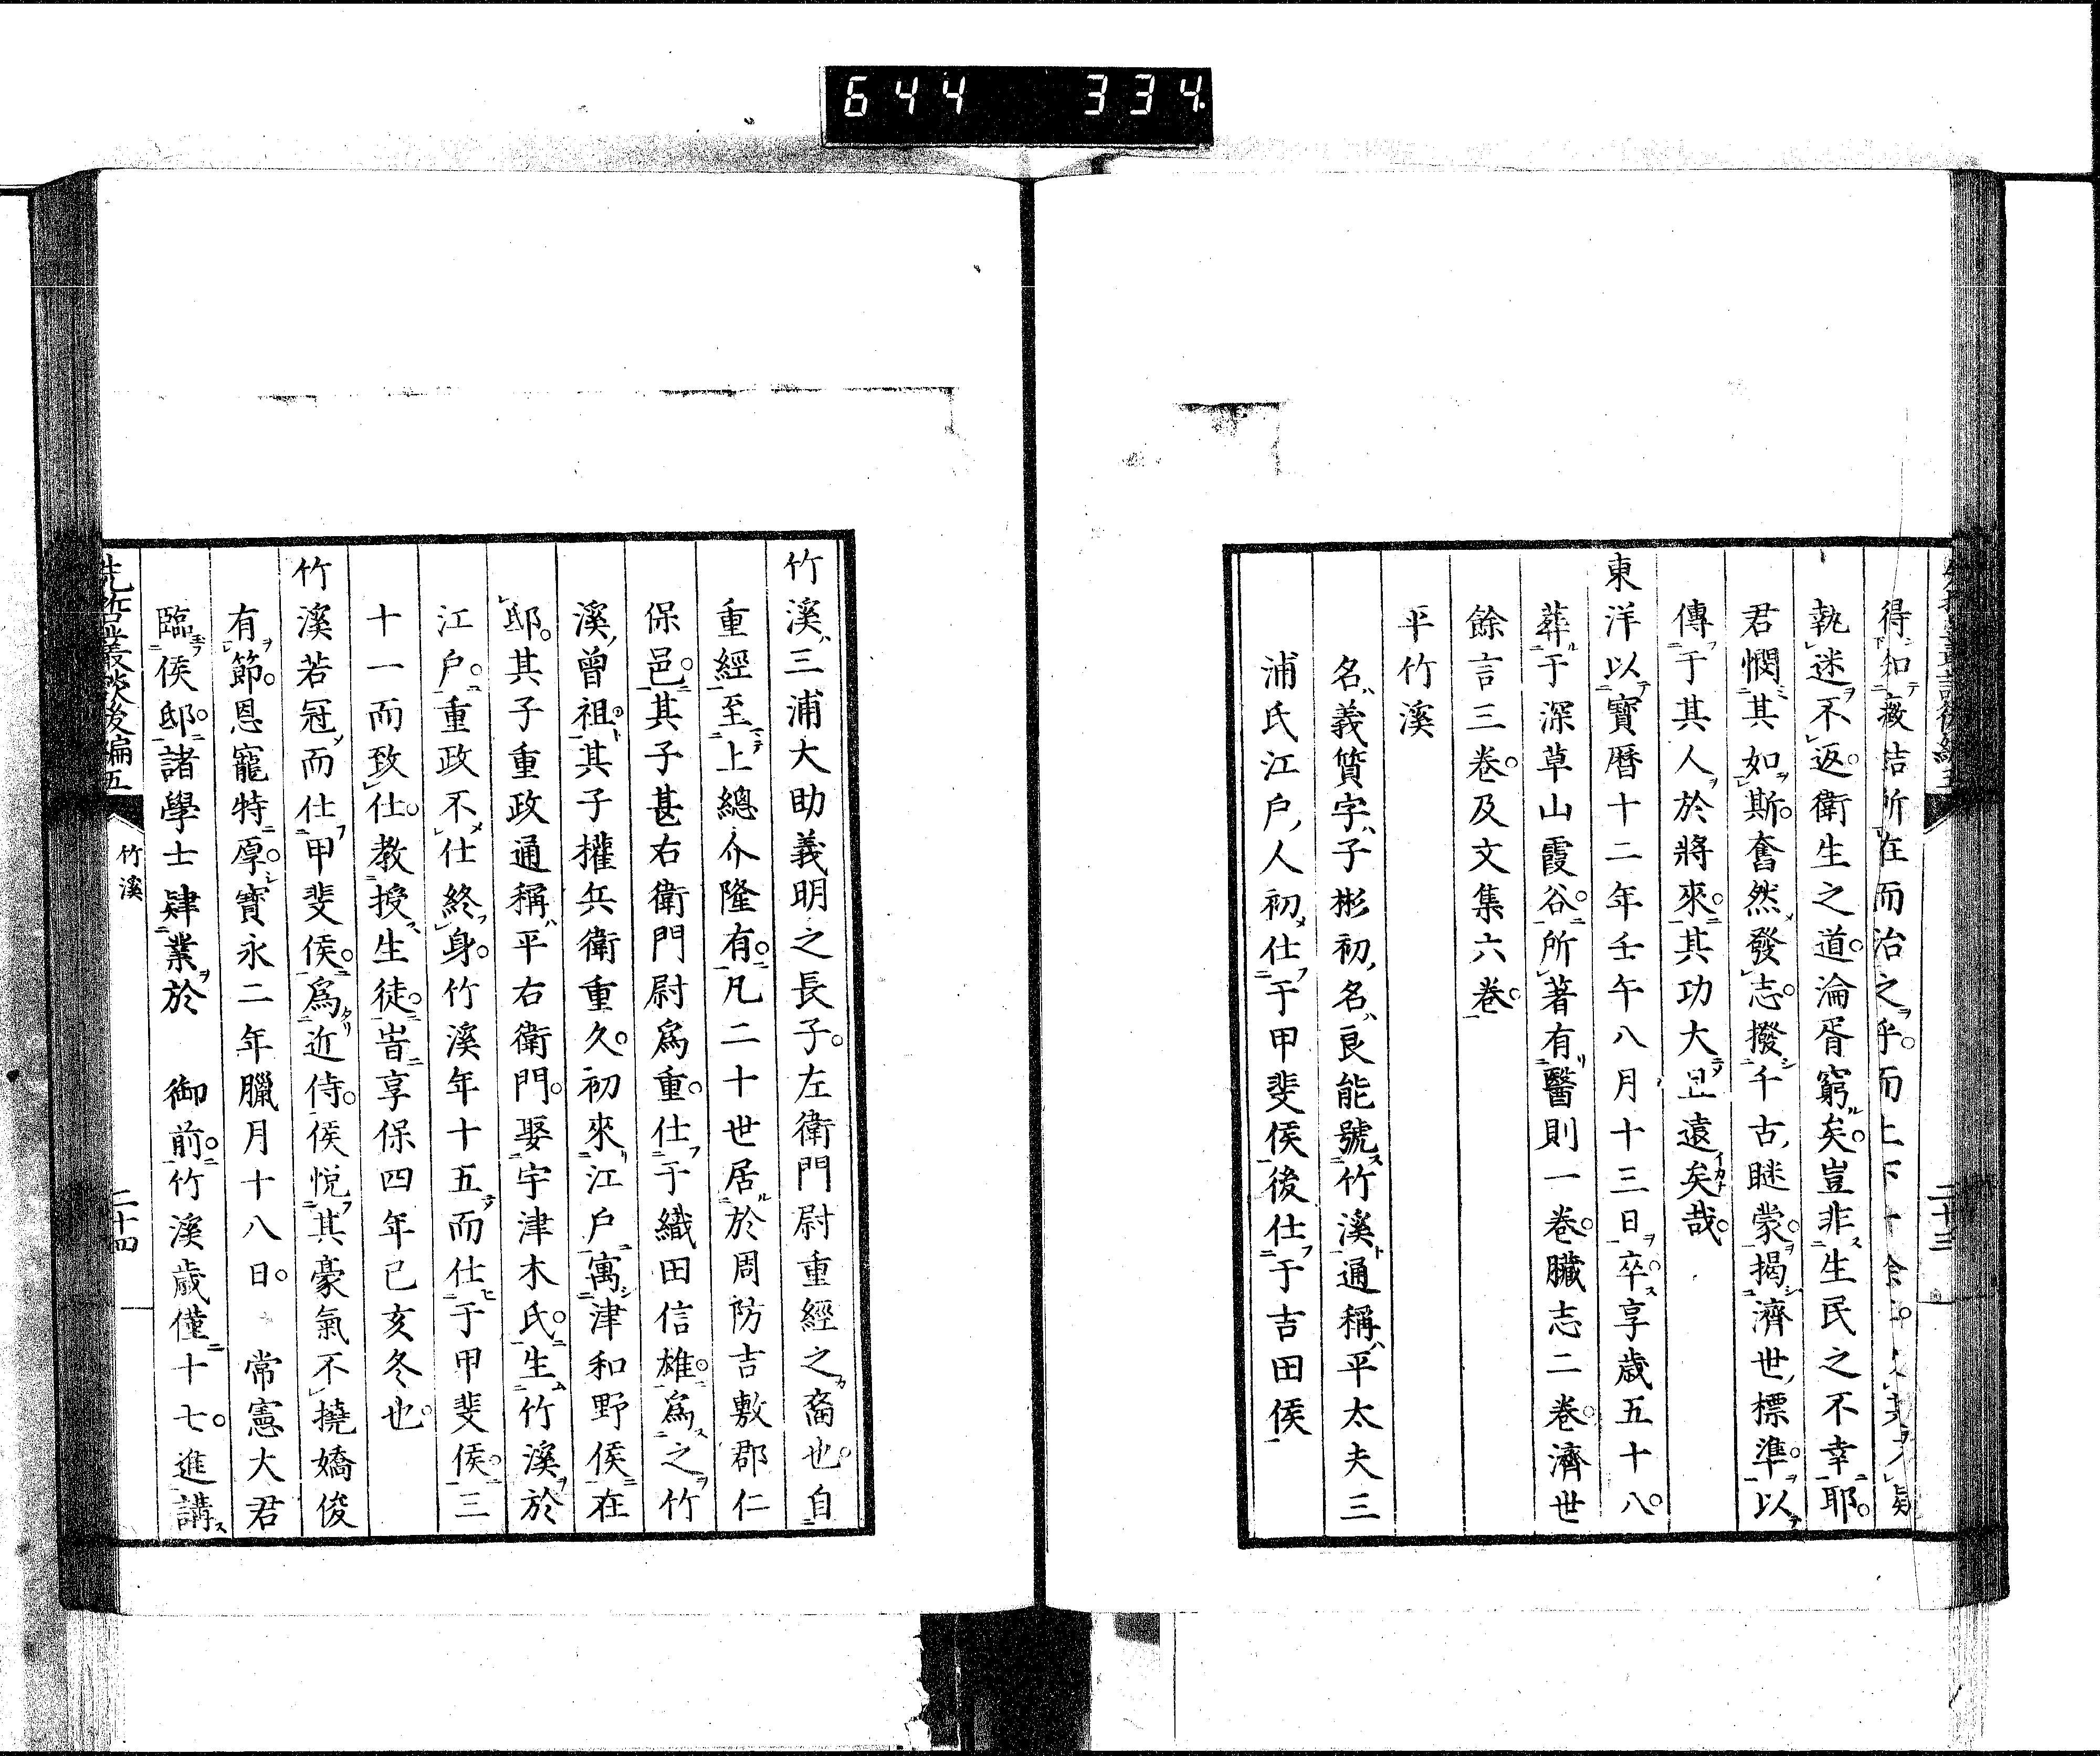 644 334.
得知癥結所在而治之乎而上下
執迷不返衛生之道淪胥窮矣豈非生民之不幸耶
君憫其如斯奮然發志撥千古眯蒙揭濟世標準以
傳于其人於將來其功大且遠矣哉
東洋以寶曆十二年壬午八月十三日卒享歲五十八
葬于深草山霞谷所著有醫則一卷臟志二卷濟世
餘言三卷及文集六卷
平竹溪
名義質字子彬初名良能號竹溪通稱平太夫三
浦氏江戶人初仕于甲斐侯後仕于吉田侯
竹溪三浦大助義明之長子左衛門尉重經之裔也自
重經至上總介隆有凡二十世居於周防吉敷郡仁
保邑其子甚右衛門尉爲重仕于織田信雄爲之竹
溪曾祖其子權兵衛重久初來江戶寓津和野侯在
邸其子重政通稱平右衛門娶宇津木氏生竹溪於
江戶重政不仕終身竹溪年十五而仕于甲斐侯三
十一而致仕教授生徒峕享保四年己亥冬也
竹溪若冠而仕甲斐侯爲近侍侯悅其豪氣不撓嬌俊
有節恩寵特厚寶永二年臘月十八日 常憲大君
臨侯邸諸學士肄業於 御前竹溪歲僅十七進講
先哲叢談後編五 竹溪 二十四